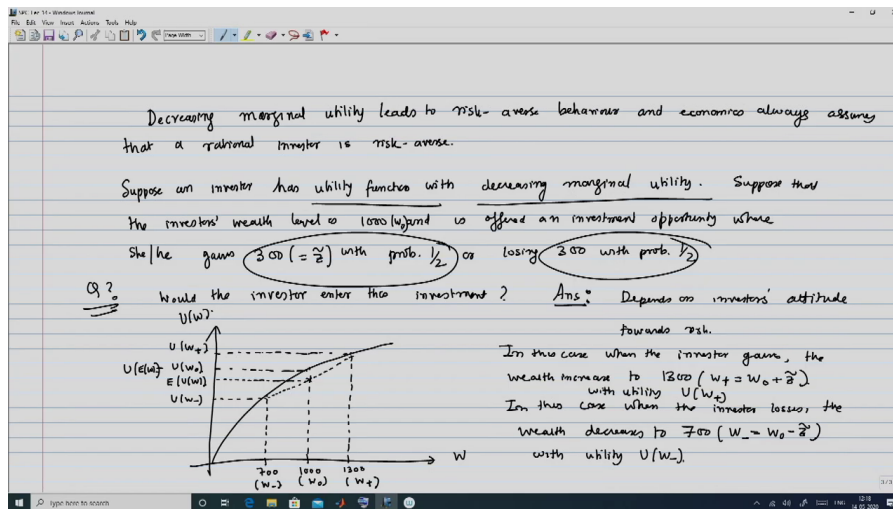 SPC Lec 14 - Windows Journal
File Edit View Insert Actions Tools Help
Page Width
Decreasing marginal utility leads to risk-averse behaviour and economics always assumes
that a rational investor is risk-averse.
Suppose an investor has utility function with decreasing marginal utility. Suppose that
the investors' wealth level is 1000 (W₀) and is offered an investment opportunity where
She/he gains 300 (= z̃) with prob. 1/2 or losing 300 with prob. 1/2
Q? Would the investor enter the investment? Ans: Depends on investors' attitude
towards risk.
U(W)
U(W+)
U(E(W)) - U(W₀)
E(U(W))
U(W-)
700 1000 1300 W
(W-) (W₀) (W+)
In this case when the investor gains, the
wealth increase to 1300 (W+ = W₀ + z̃)
with utility U(W+)
In this case when the investor losses, the
wealth decreases to 700 (W- = W₀ - z̃)
with utility U(W-).
3/3
Type here to search
ENG
12:18
14-05-2020